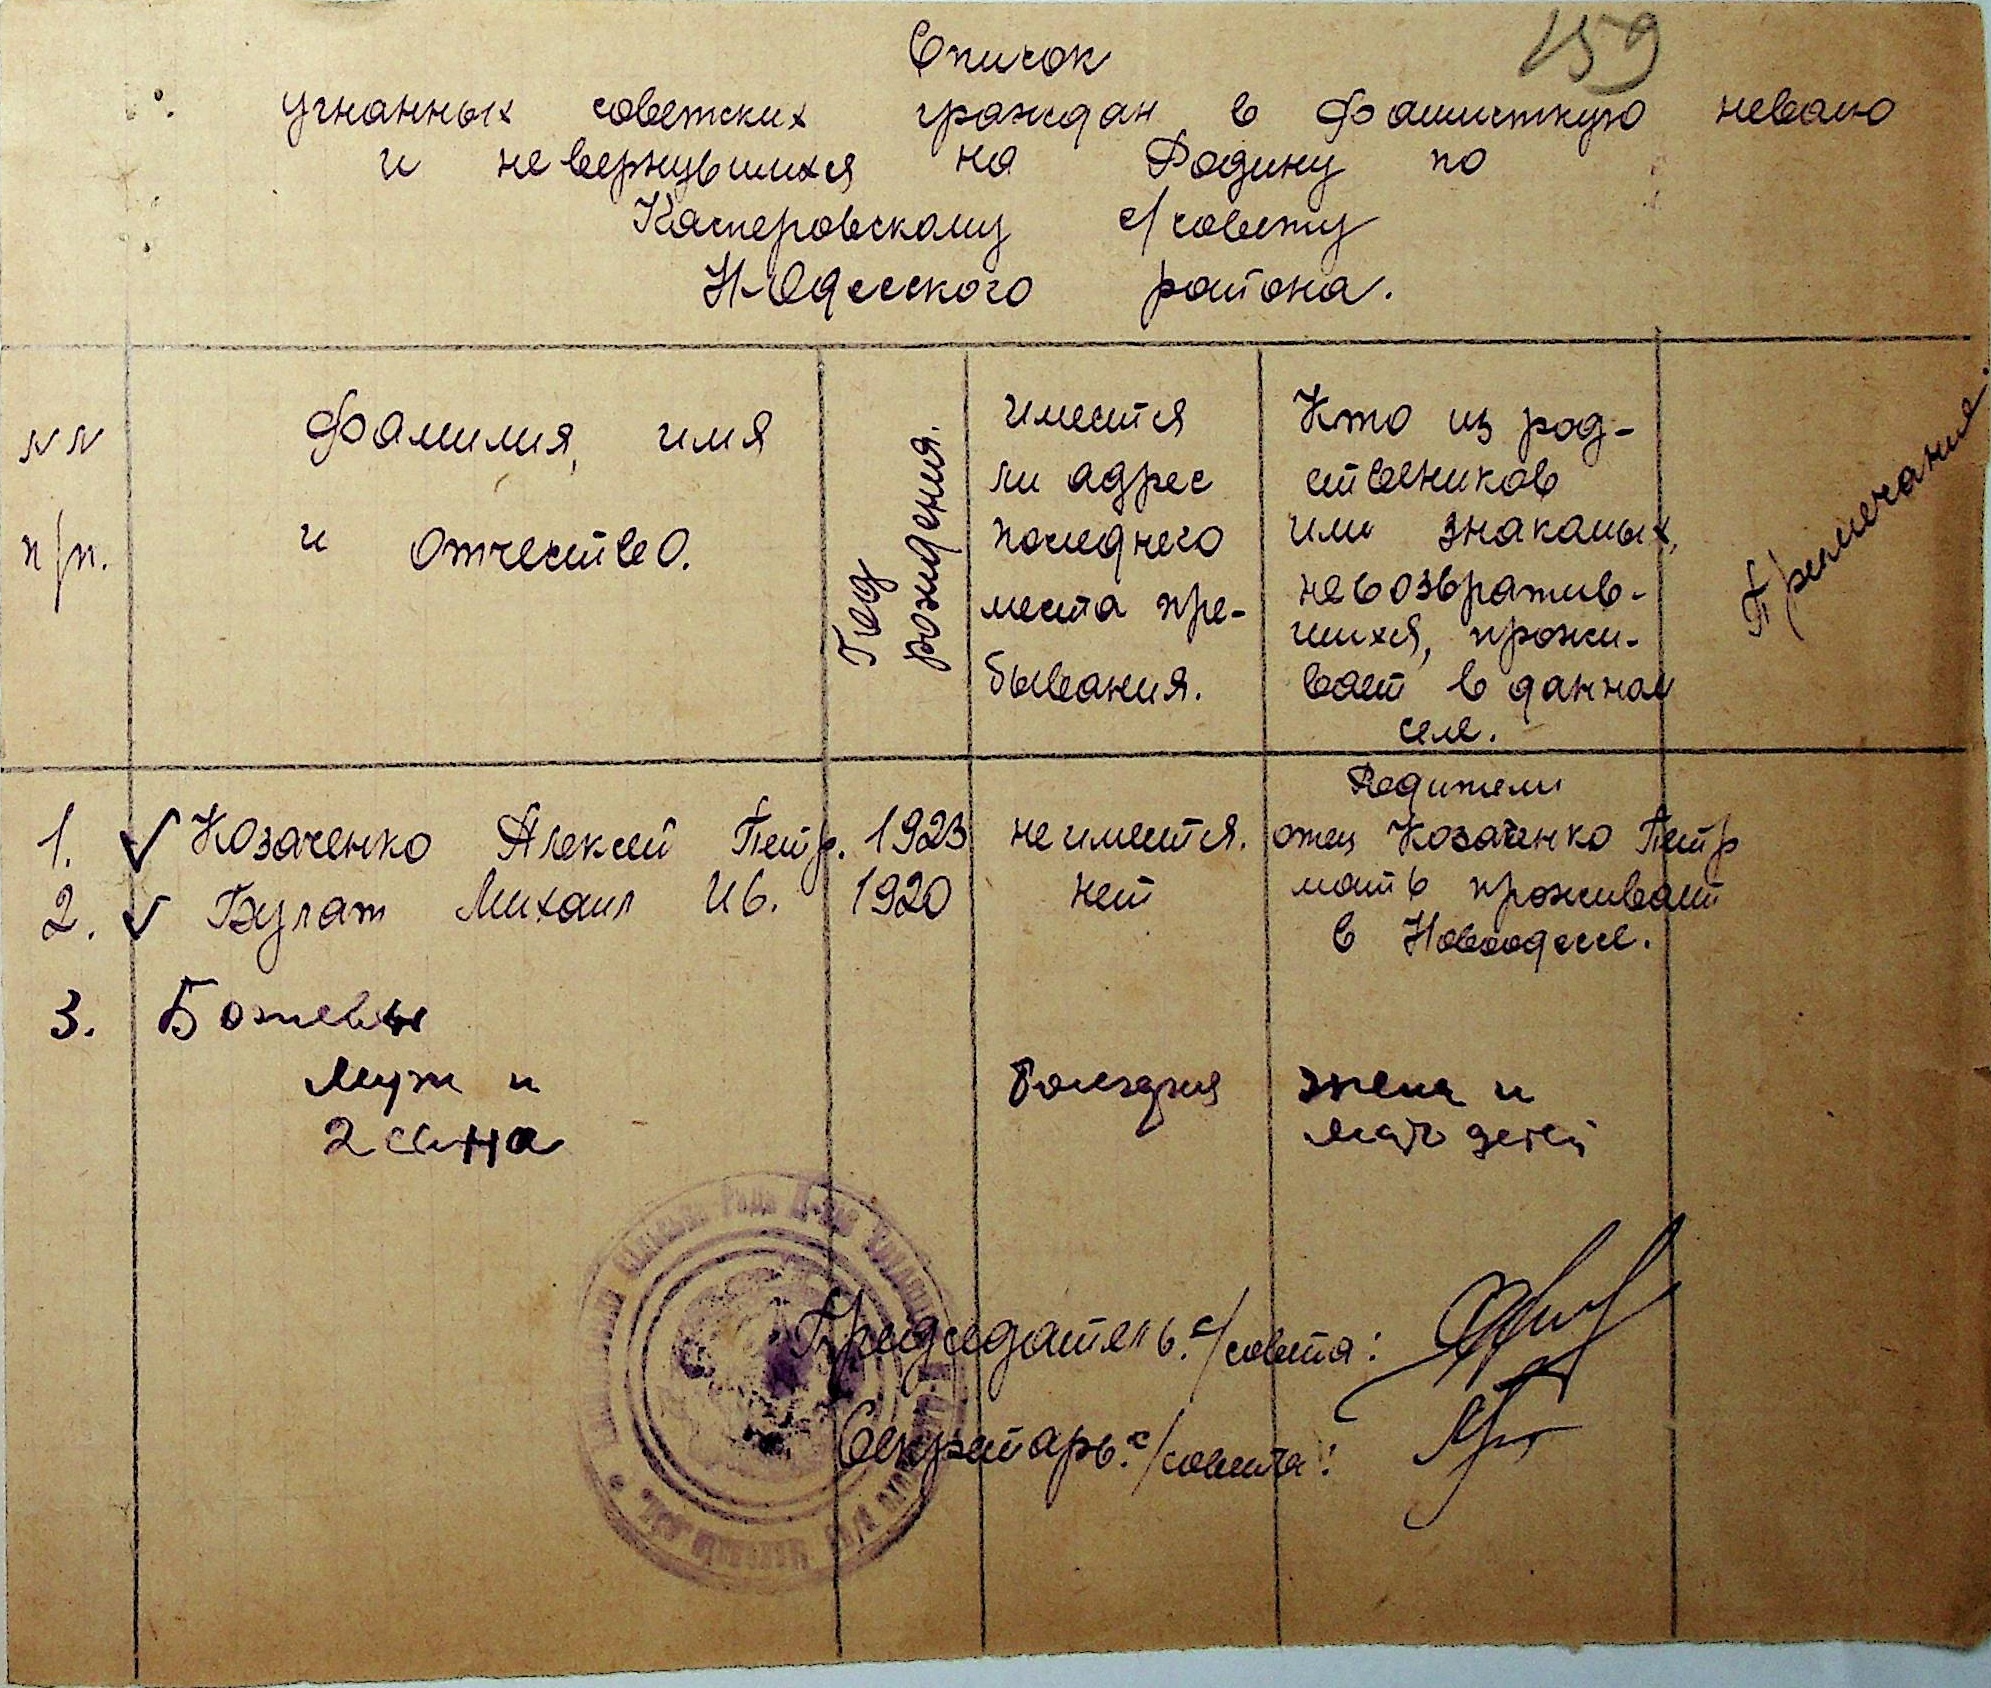 159
Список
угнанных советских граждан в фашисткую неволю
и невернувшихся на Родину по
Касперовскому с/совету
Н-Одесского района.
NN
п/п.
Фамилия, имя
и отчество.
Год
рождения.
имеется
ли адрес
последнего
места пре-
бывания.
Кто из род-
ственников
или знакамых,
невозвратив-
шихся, прожи-
вает в данном
селе.
Примечание.
Родители
1. ✓ Козаченко Алексей Петр. 1923 не имеется. отец Козаченко Петр
2. ✓ Булат Михаил Ив. 1920 нет мать проживает
в Новоодессе.
3. Божевы
муж и Болгария жена и
2 сына мать детей
Председатель с/совета:
Секретарь с/совета: